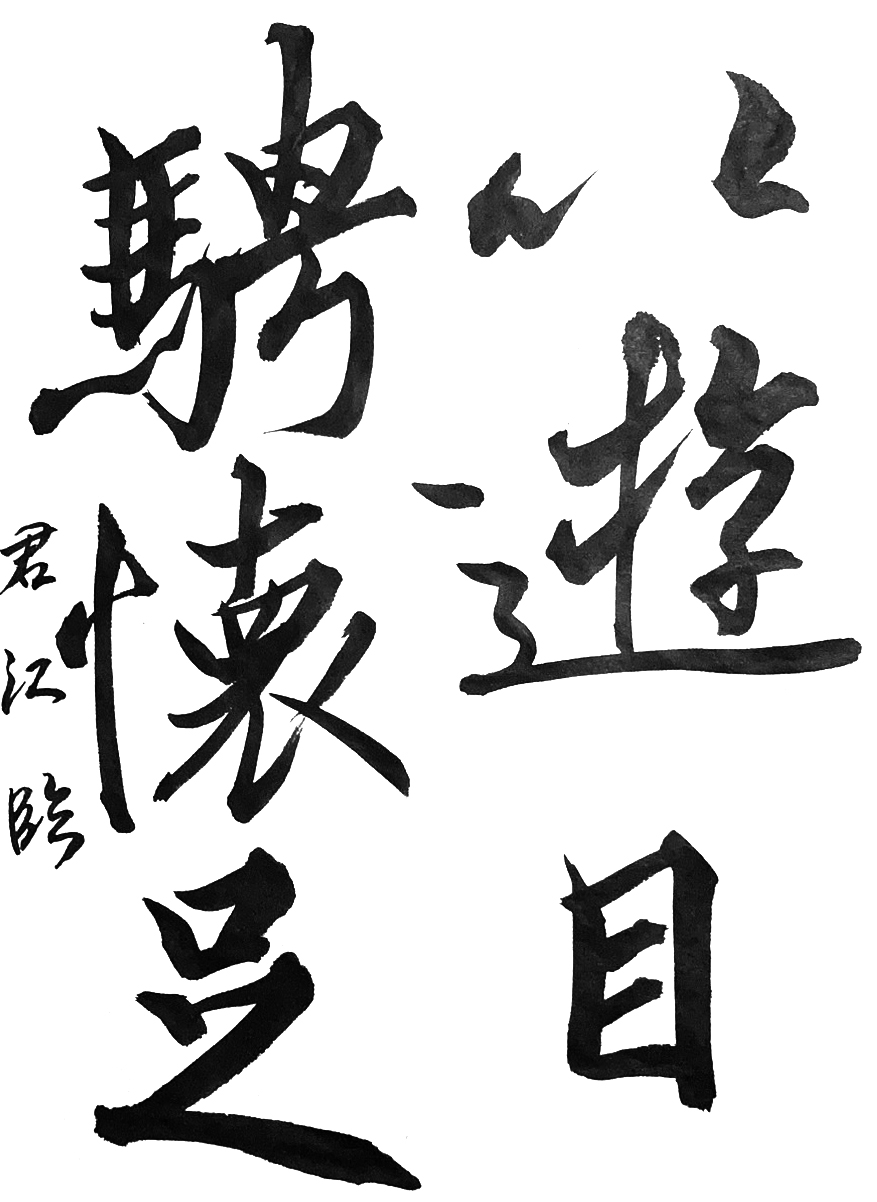 以遊目
騁懷足
君江臨